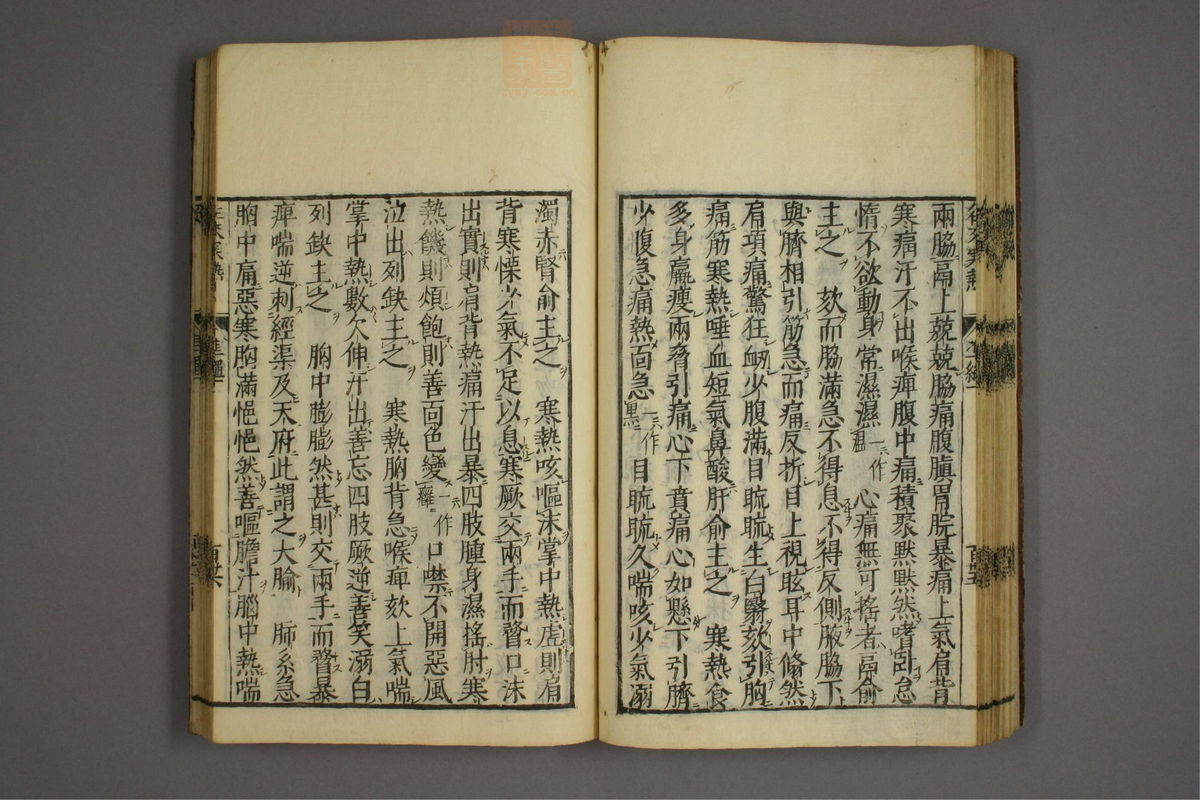 兩脇鬲上兢兢脇痛腹䐜胃脘暴痛上氣肩背
寒痛汗不出喉痺腹中痛積聚默默然嗜臥怠
惰不欲動身常濕濕一作𣽈心痛無可搖者鬲俞
主之　欬而脇滿急不得息不得反側腋脇下
與臍相引筋急而痛反折目上視眩耳中翛然
肩項痛驚狂衂少腹滿目䀮䀮生白翳欬引胸
痛筋寒熱唾血短氣鼻酸肝俞主之　寒熱食
多身羸瘦兩脅引痛心下賁痛心如懸下引臍
少腹急痛熱面急一作黑目䀮䀮久喘咳少氣溺
濁赤腎俞主之　寒熱咳嘔沫掌中熱虛則肩
背寒慄少氣不足以息寒厥交兩手而瞀口沫
出實則肩背熱痛汗出暴四肢腫身濕搖肘寒
熱饑則煩飽則善面色變一作癰口噤不開惡風
泣出列缺主之　寒熱胸背急喉痺欬上氣喘
掌中熱數欠伸汗出善忘四肢厥逆善笑溺白
列缺主之　胸中膨膨然甚則交兩手而瞀暴
痺喘逆刺經渠及天府此謂之大腧　肺系急
胸中痛惡寒胸滿悒悒然善嘔膽汁腦中熱喘